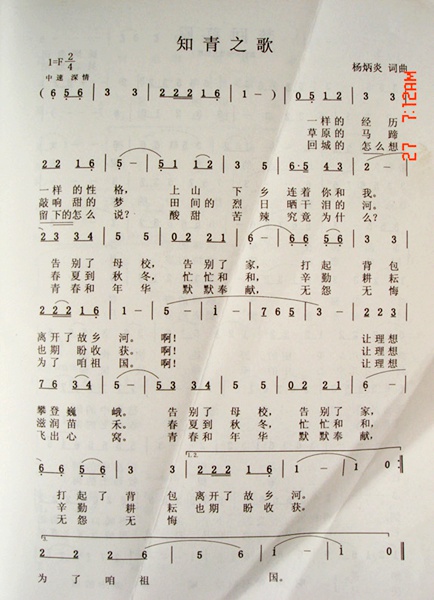 知青之歌
1=F 2/4
中速 深情
杨炳炎 词曲
(6 5 6 | 3 3 | 2 2 2 1 6 | 1 - ) | 0 5 1 2 | 3 3 |
一样的 经 历
草原的 马 蹄
回城的 怎么想
2 2 1 6 | 5 - | 5 1 1 2 | 3 5 | 6 5 4 3 | 2 - |
一样的性 格, 上山 下 乡 连着你和我。
敲响甜的 梦 田间的 烈 日 晒干泪的河。
留下的怎么 说? 酸甜 苦 辣 究竟为什么?
告别了 母 校, 告别了 家, 打起 背包
春夏到 秋冬, 忙忙和 和, 辛勤 耕耘
青春和 年 华 默默奉 献, 无怨 无悔
离开了故乡 河。啊! 让理想
也期 盼收 获。啊! 让理想
为了 咱祖 国。啊! 让理想
攀登巍 峨, 告别了 母 校, 告别了 家,
滋润苗 禾。 春夏到 秋冬, 忙忙和 和,
飞出心 窝。 青春和 年 华 默默奉 献,
1. 2.
打起了 背 包 离开了故乡 河。
辛勤 耕 耘 也期 盼收 获。
无怨 无悔
2.
2 2 2 6 | 5 6 | 1 - | 1 0 ‖
为 了 咱 祖 国。
27 7:12AM